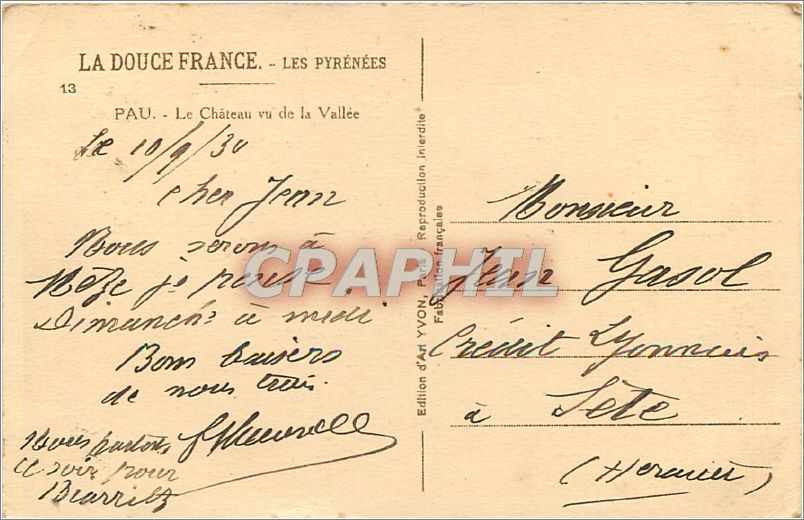 LA DOUCE FRANCE. - LES PYRÉNÉES
13
PAU. - Le Château vu de la Vallée
Le 10/9/30
Cher Jean
Nous serons à
Mèze je pense
Dimanche à midi
Bons baisers
de nous trois.
Nous partons
ce soir pour
Biarritz
CPAPHIL
Edition d'Art YVON, Paris Reproduction interdite
Fabrication française
Monsieur
Jean Gasol
Crédit Lyonnais
à Sète
(Herault)